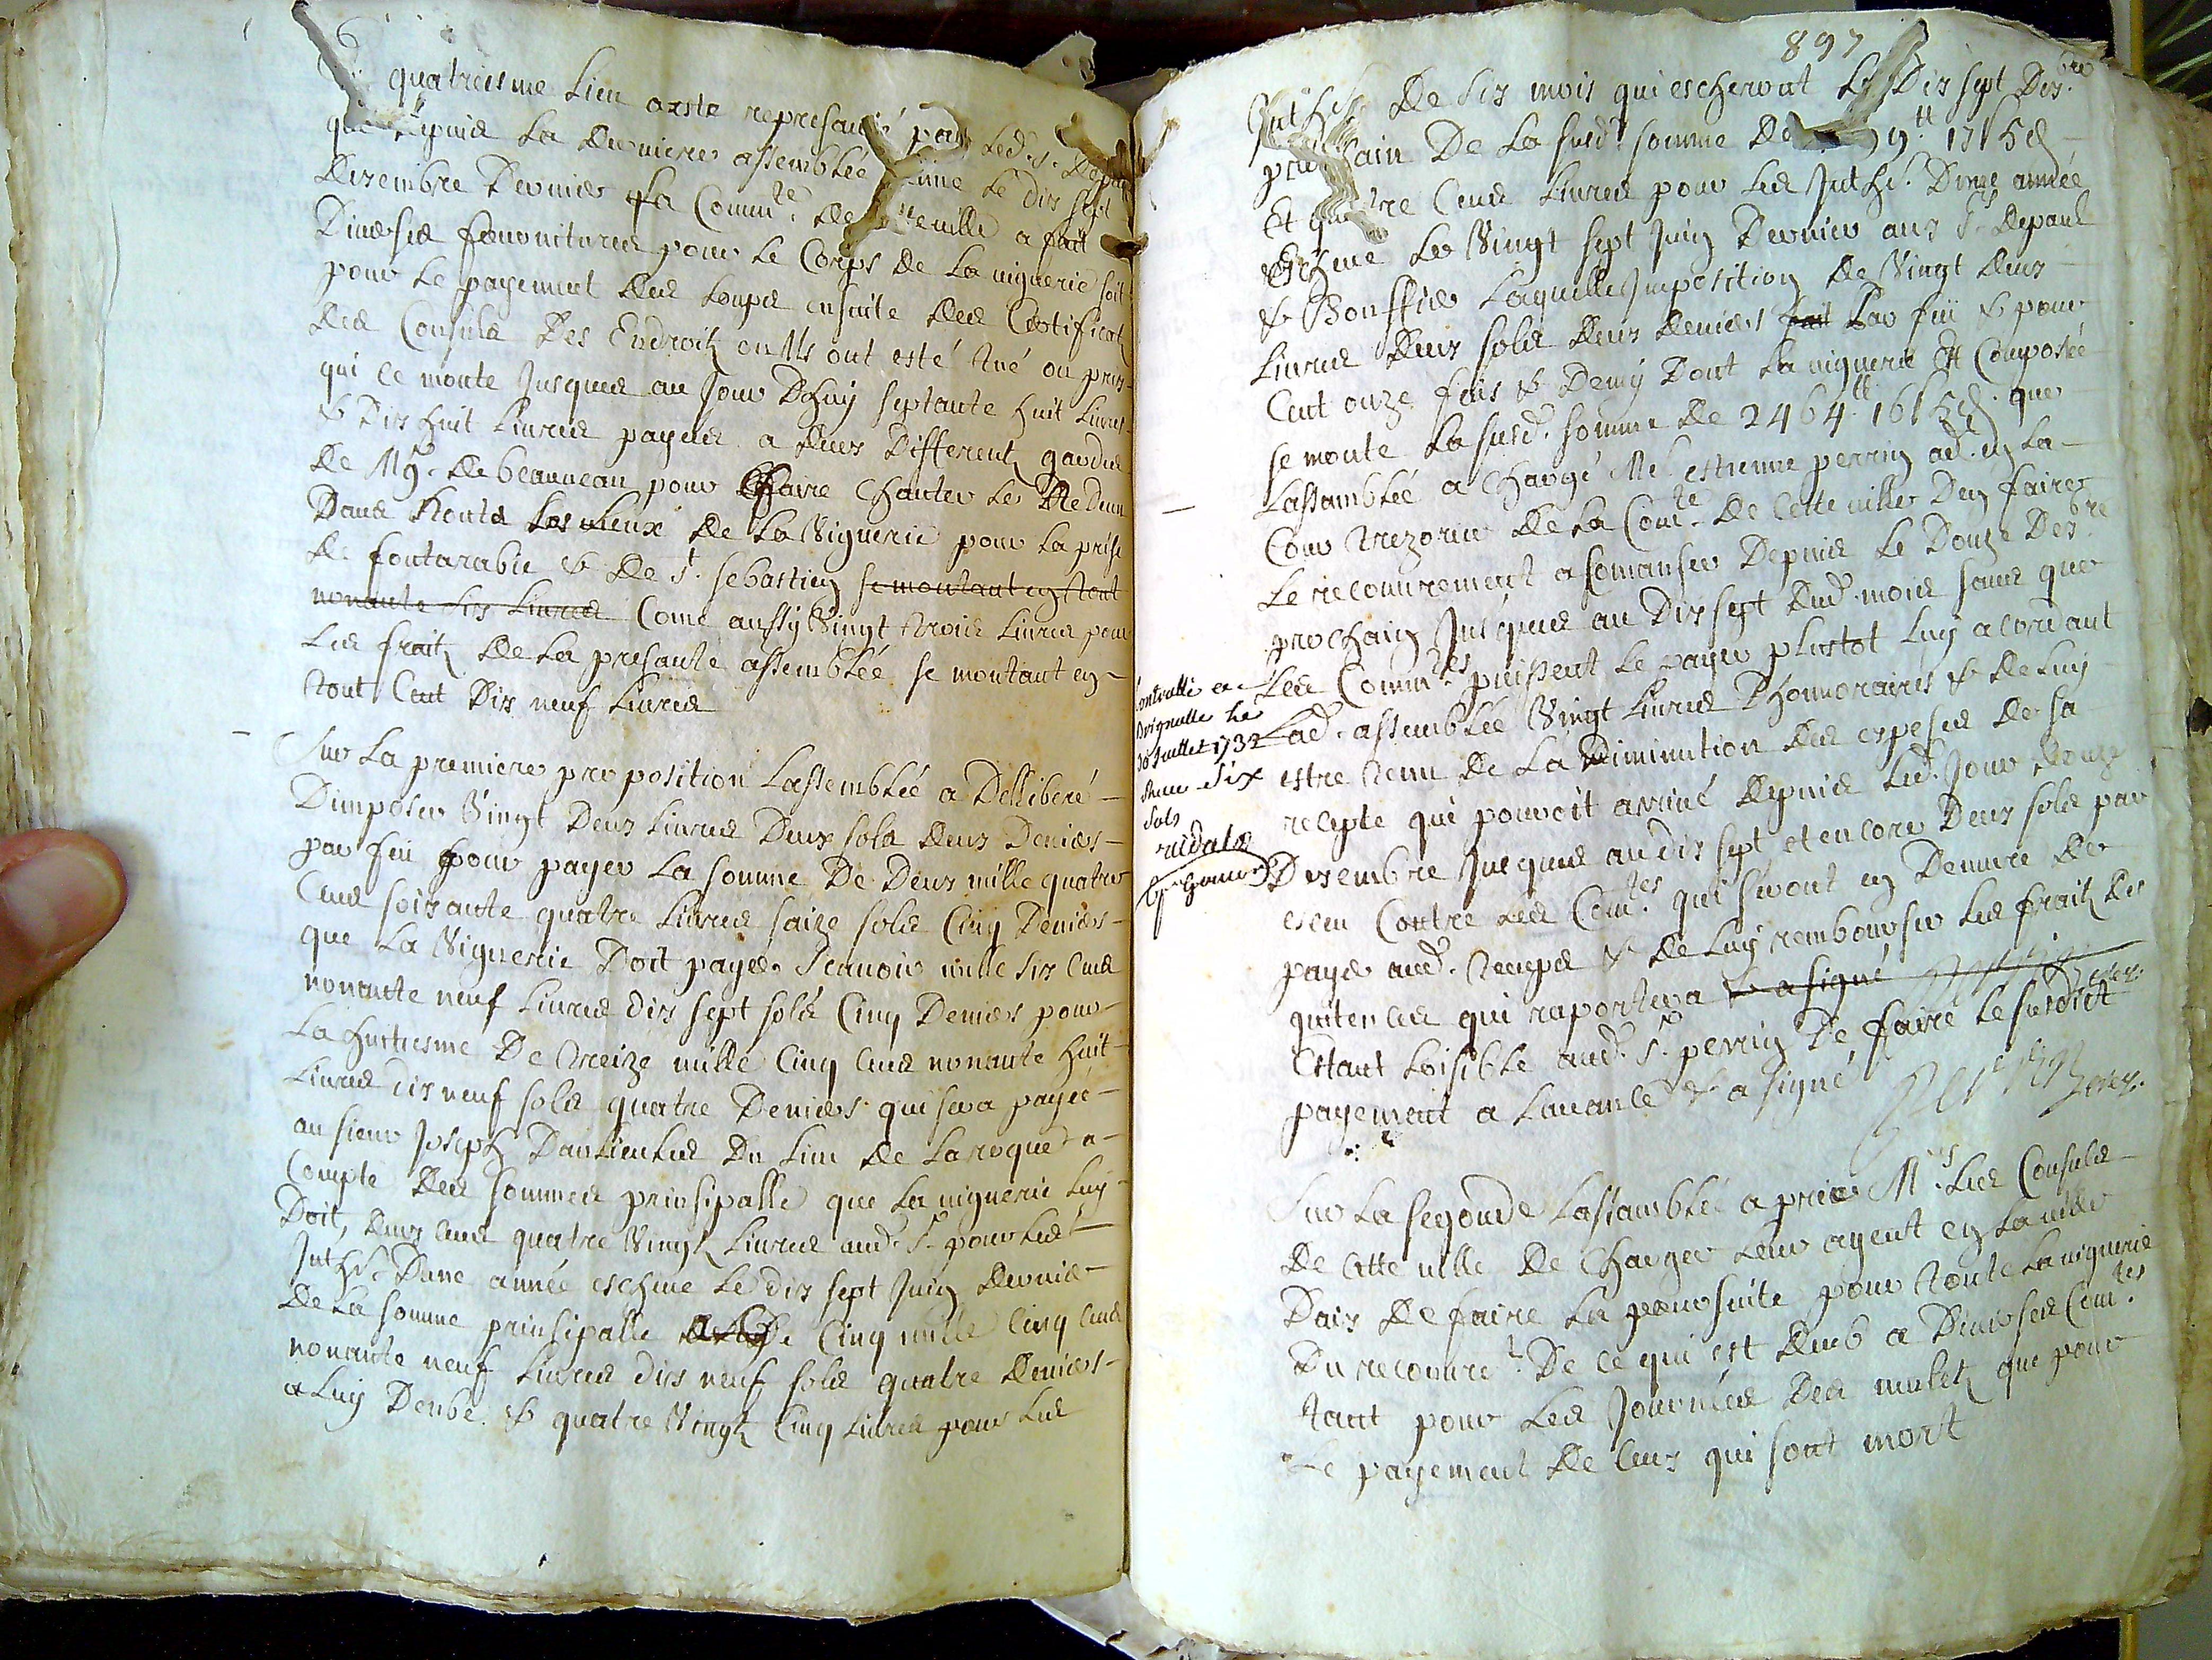 quatreisme lieu a este represanté par led. s. Depu
que depuis la derniere assemblée tenue le dix sept
Dexembre Dernier la Comm.te de cette ville a fait
Diverses fournitures pour le Corps de la viguerie soit
pour le payement des loups ensuite des Certificatz
des Consuls Des Endroitz ou ils ont esté tué ou pris
qui ce monte Jusques au Jour Dhuy septante huit livres
& Dix huit livres payees a deux Differentz gardes
de Mg.r de beauveau pour ffaire Chanter le te Deum
Dans toute les lieux de la Viguerie pour la prise
de fontarabie & de s.t sebastien se montant en tout
nonante six livres Come aussy Vingt trois livres pour
les fraitz de la presante assemblée se montant en
tout Cent Dix neuf livres
Sur la premiere proposition lassemblée a Dellibéré
Dimposer Vingt Deux livres Deux sols deux Deniers
par feu pour payer la somme De Deux mille quatre
Cens soixante quatre livres saize sols Cinq Deniers
que la Viguerie Doit payer Scavoir mille six cens
nonante neuf livres dix sept sols Cinq Deniers pour
la huitiesme De treize mille Cinq cens nonante huit
livres dix neuf sols quatre Deniers qui sera payée
au sieur Joseph Dantieules Du lieu de laroque a
Compte des sommes prinsipalle que la viguerie luy
Doit, deux cens quatre Vingtz livres aud. s.r pour les
Inth.s Dune année escheue le dix sept Juin dernier
de la somme prinsipalle de Cinq mille Cinq cens
nonante neuf livres dix neuf sols quatre deniers
a luy Deube & quatre Vingtz Cinq livres pour les
897
Inth.s De six mois qui escheront le Dix sept Dex.bre
prochain De la susd. somme De 99 tt 17 s 5 d
Et quatre Cens livres pour les Inth.s Dune année
escheue le Vingt sept Juin Dernier aux s.rs Depaul
& Bouffier laquelle Imposition de Vingt deux
livres deux sols deux deniers fait par feu & pour
Cent onze feus & Demy Dont la viguerie est Composée
se monte la susd. somme de 2464 tt 16 s 5 d. que
lassamblée a Chargé Me. estienne perrin ad. en la
Cour trezorier de la Com.te de Cette ville Den faire
le recouvrement a Comanser Depuis le Douze Dex.bre
prochain Jusques au Dix sept dud. mois sans que
les Comm.tes puissent le payer plustot luy acordant
lad. assemblée Vingt livres Dhonnoraires & de luy
estre tenu de la Diminution des espeses de sa
recepte qui pouvoit arrivé depuis led. Jour douze
Dexembre Jusques au dix sept et encore Deux sols par
escu Contre les Com.tes qui seront en Demure de
payer aud. temps & de luy rembourser les fraitz des
quitences qui raportera & a signé
Estant loisible aud. s.r perrin De faire le susdict
payement a lavance & a signé
Perrin trezor.
Controllé a
Brignolle le
30 Juillet 1732
Receu six
sols
Sur la segonde lassamblée a prier M.rs les Consuls
De Cette ville De Charger leur agent en la ville
Daix De faire la poursuite pour toute la viguerie
Du recouvre.t De ce qui est deub a Diverses Com.tes
tant pour les Journées Des muletz que pour
le payement de ceux qui sont mort